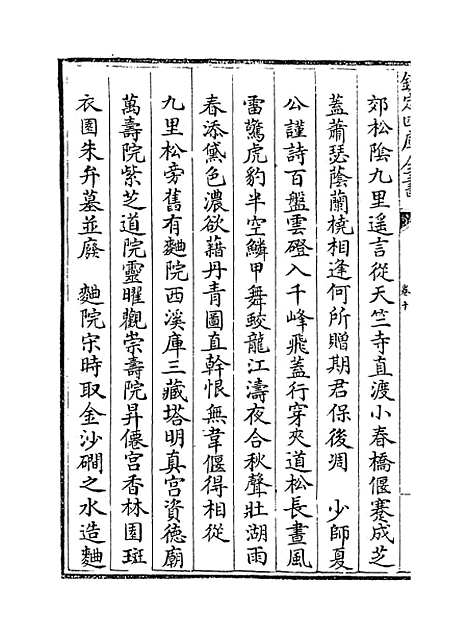 欽定四庫全書
卷十
郊松陰九里遥言從天竺寺直渡小春橋偃蹇成芝
蓋蕭瑟蔭蘭橈相逢何所贈期君保後凋　少師夏
公謹詩百盤雲磴入千峰飛蓋行穿夾道松長晝風
雷驚虎豹半空鱗甲舞蛟龍江濤夜合秋聲壯湖雨
春添黛色濃欲藉丹青圖直幹恨無韋偃得相從
九里松旁舊有麯院西溪庫三藏塔明真宫資德廟
萬壽院紫芝道院靈曜觀崇壽院昇僊宫香林園斑
衣園朱弁墓並廢　麯院宋時取金沙磵之水造麯